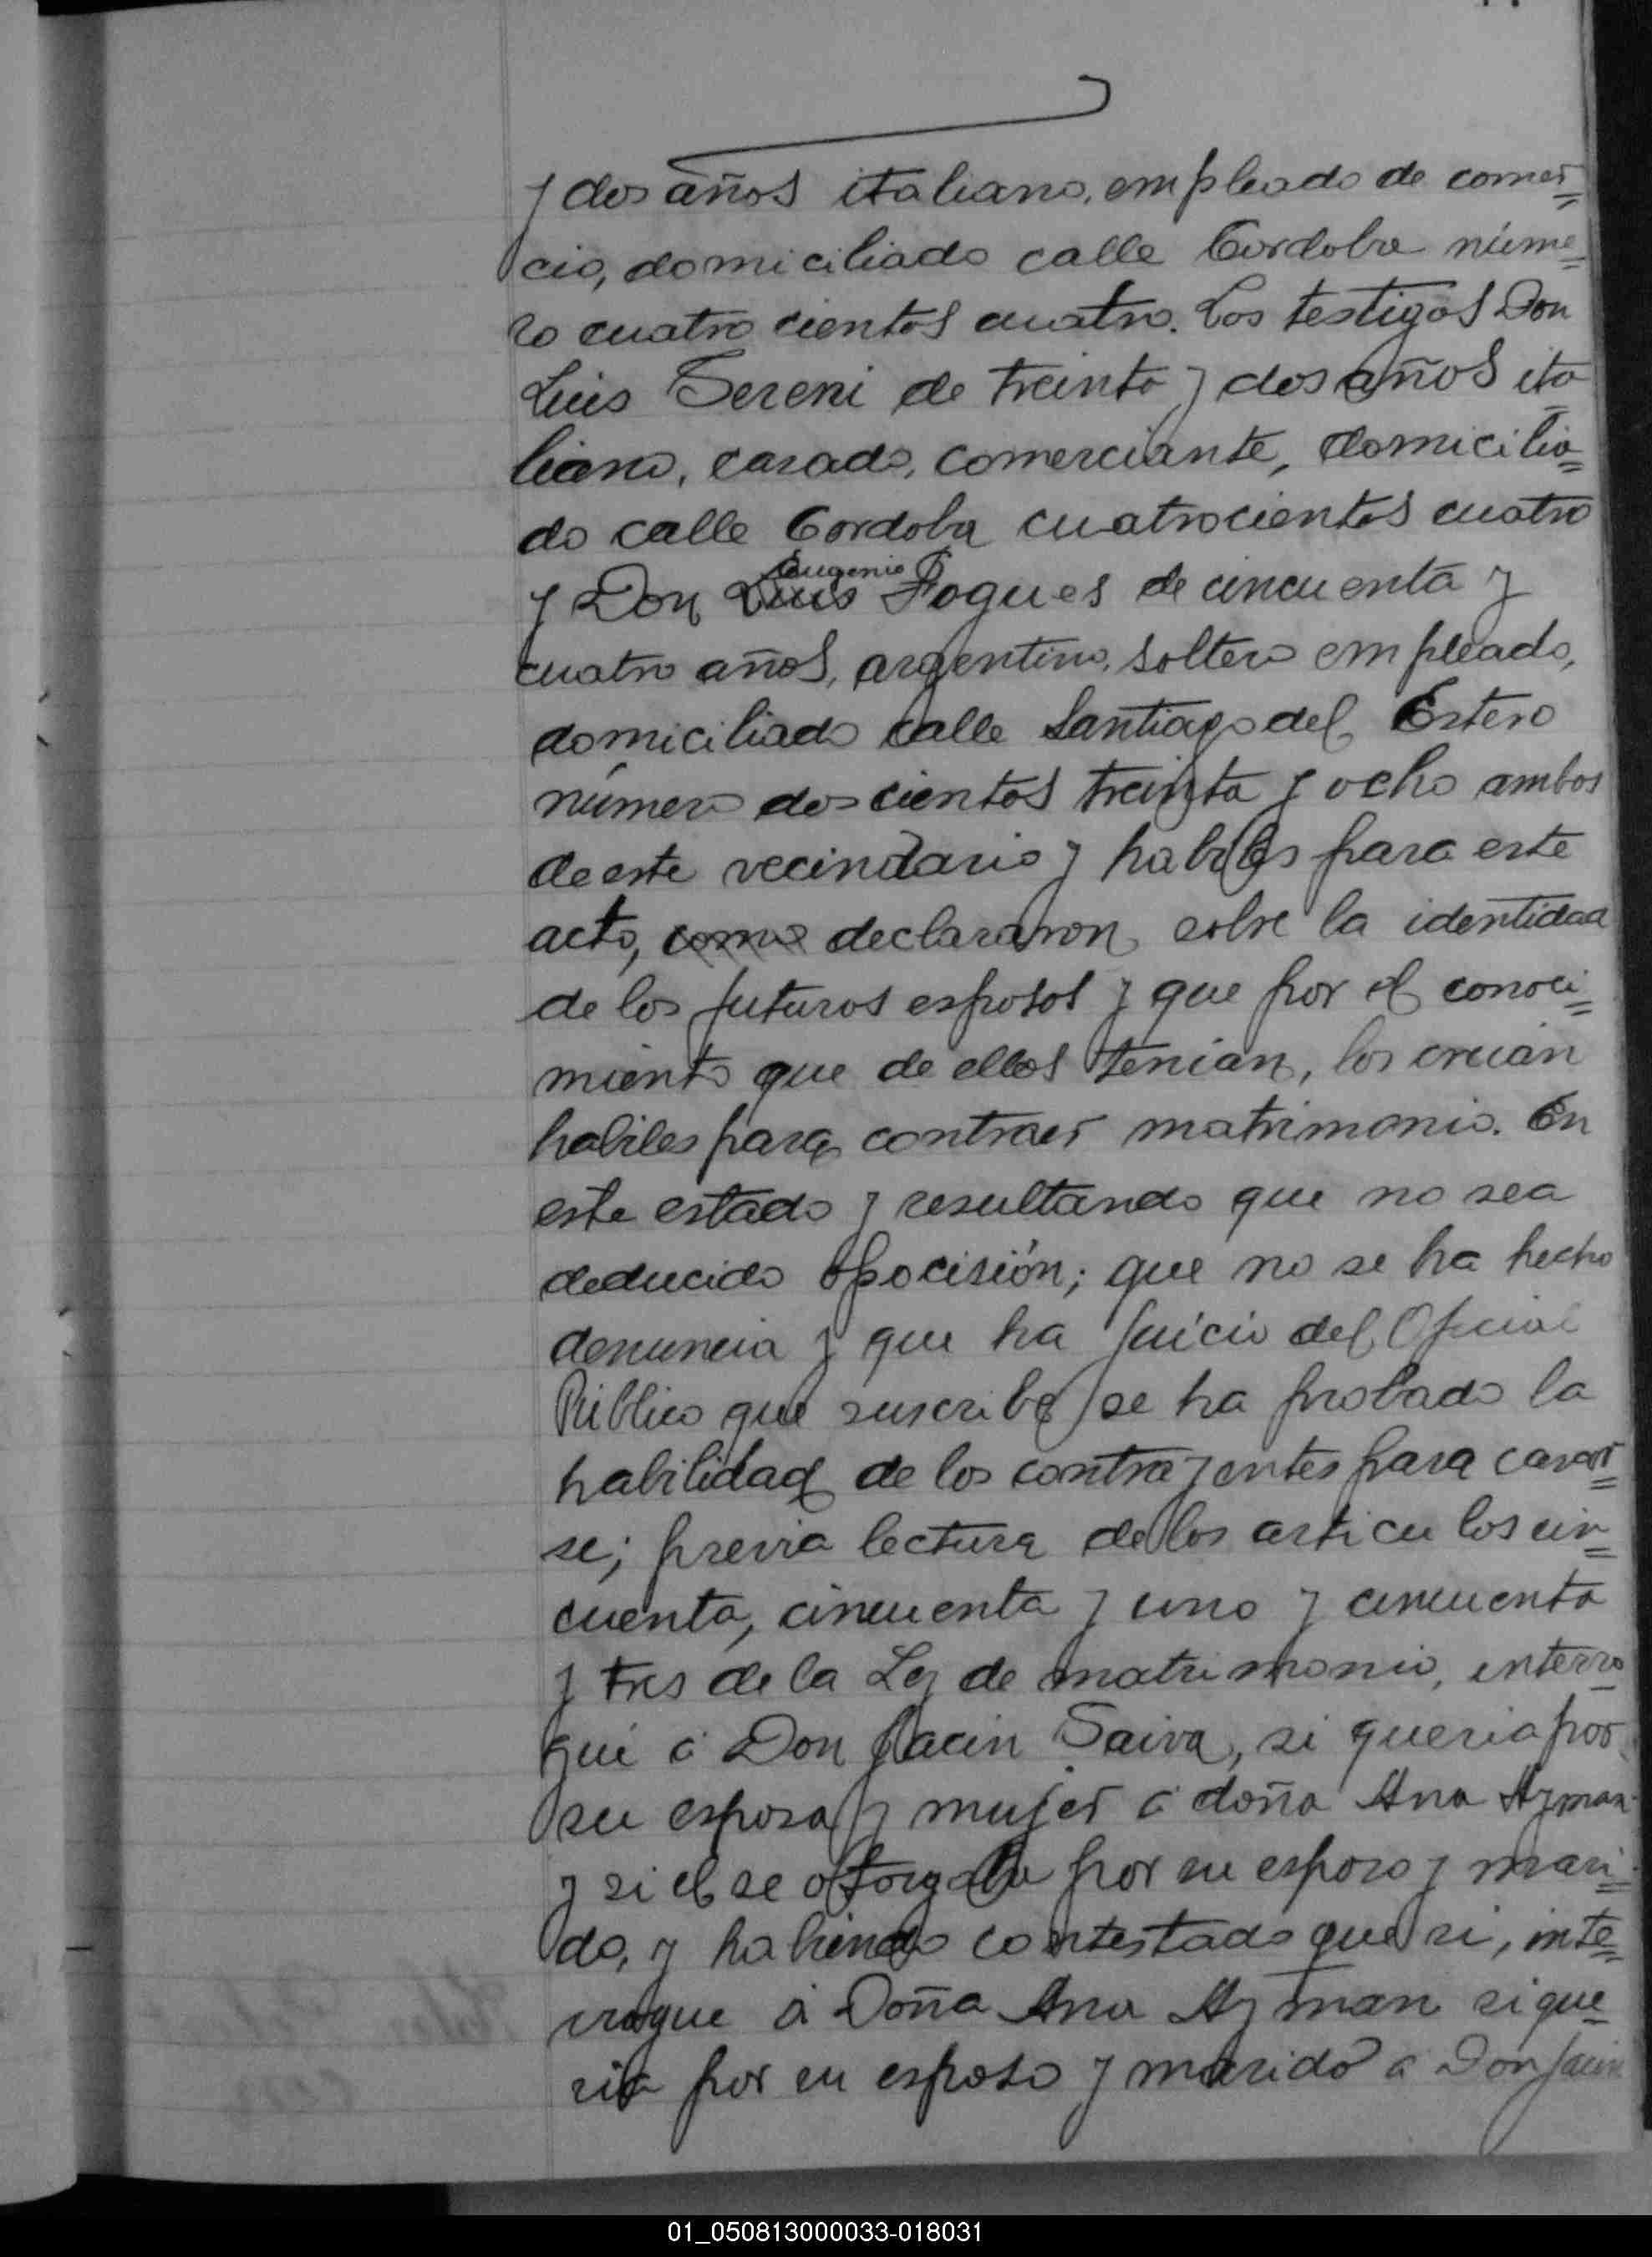 y dos años italiano, empleado de comer=
cio, domiciliado calle Cordoba núme=
ro cuatro cientos cuatro. Los testigos Don
Luis Sereni de treinta y dos años ita
liano, casado, comerciante, domicilia=
do calle Cordoba cuatrocientos cuatro
Eugenio
y Don Luis Fogues de cincuenta y
cuatro años, argentino, soltero empleado,
domiciliado calle Santiago del Estero
número doscientos treinta y ocho ambos
de este vecindario y habiles para este
acto, como declararon sobre la identidad
de los futuros esposos y que por el conoci=
miento que de ellos tenian, los creian
habiles para contraer matrimonio. En
este estado y resultando que no sea
deducido opocisión; que no se ha hecho
denuncia y que ha juicio del Oficial
Público que suscribe se ha probado la
habilidad de los contrayentes para casar=
se; previa lectura de los articulos cin=
cuenta, cincuenta y uno y cincuenta
y tres de la Ley de matrimonio, interro
gué á Don Jacin Saiva, si queria por
su esposa y mujer á doña Ana Ayman
y si el se otorgaba por su esposo y mari=
do, y habiendo contestado que si, inte=
rrogue á Doña Ana Ayman si que=
ria por su esposo y marido á Don Jacin
01_050813000033-018031